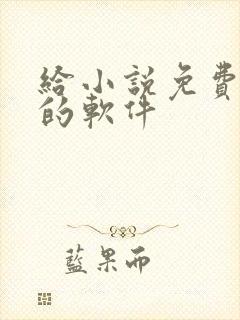 給小説免費
的軟件
藍果而